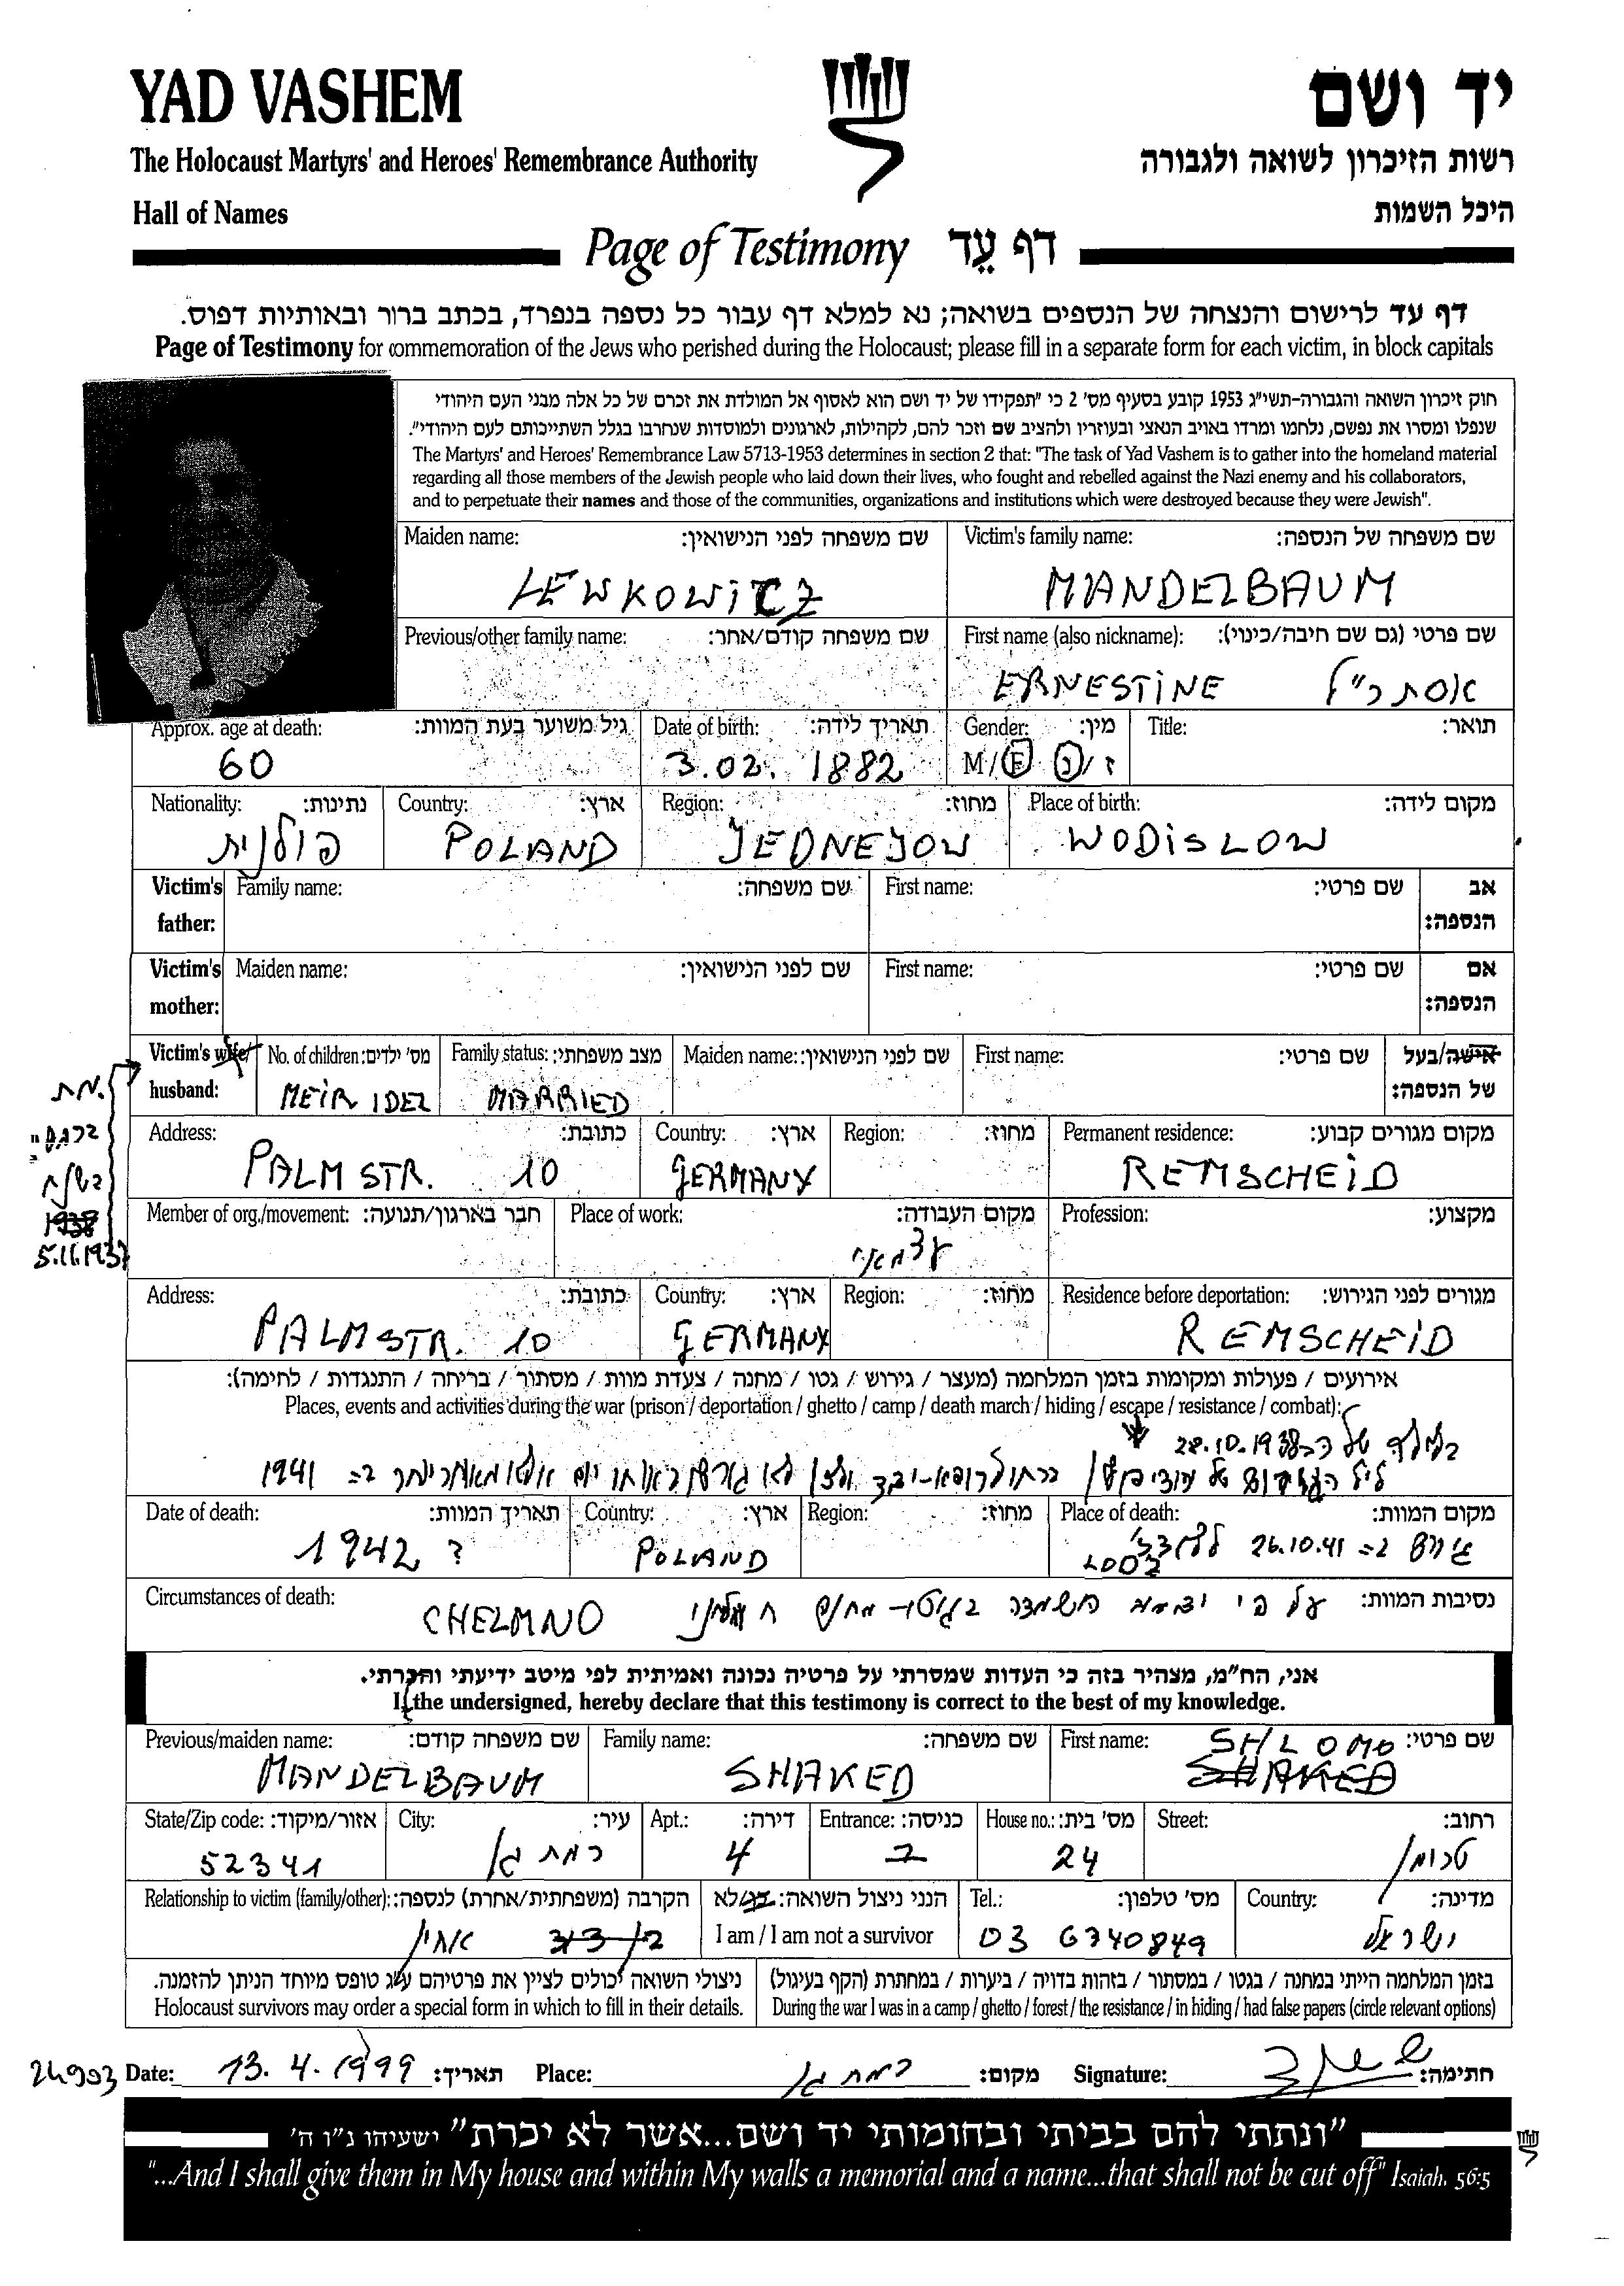 YAD VASHEM
יד ושם
The Holocaust Martyrs' and Heroes' Remembrance Authority
רשות הזיכרון לשואה ולגבורה
Hall of Names
היכל השמות
Page of Testimony דף עֵד
דף עד לרישום והנצחה של הנספים בשואה; נא למלא דף עבור כל נספה בנפרד, בכתב ברור ובאותיות דפוס.
Page of Testimony for commemoration of the Jews who perished during the Holocaust; please fill in a separate form for each victim, in block capitals
חוק זיכרון השואה והגבורה-תשי"ג 1953 קובע בסעיף מס' 2 כי "תפקידו של יד ושם הוא לאסוף אל המולדת את זכרם של כל אלה מבני העם היהודי
שנפלו ומסרו את נפשם, נלחמו ומרדו באויב הנאצי ובעוזריו ולהציב שם וזכר להם, לקהילות, לארגונים ולמוסדות שנחרבו בגלל השתייכותם לעם היהודי".
The Martyrs' and Heroes' Remembrance Law 5713-1953 determines in section 2 that: "The task of Yad Vashem is to gather into the homeland material
regarding all those members of the Jewish people who laid down their lives, who fought and rebelled against the Nazi enemy and his collaborators,
and to perpetuate their names and those of the communities, organizations and institutions which were destroyed because they were Jewish".
Maiden name: שם משפחה לפני הנישואין: Victim's family name: שם משפחה של הנספה:
LEWKOWITCZ MANDELBAUM
Previous/other family name: שם משפחה קודם/אחר: First name (also nickname): שם פרטי (גם שם חיבה/כינוי):
ERNESTINE אסתר"ל
Approx. age at death: גיל משוער בעת המוות: Date of birth: תאריך לידה: Gender: מין: Title: תואר:
60 3.02. 1882 M/F ז/נ
Nationality: נתינות: Country: ארץ: Region: מחוז: Place of birth: מקום לידה:
פולנית POLAND JEDNEJOW WODISLOW
Victim's father: Family name: שם משפחה: First name: שם פרטי: אב הנספה:
Victim's mother: Maiden name: שם לפני הנישואין: First name: שם פרטי: אם הנספה:
Victim's wife/ husband: No. of children: מס' ילדים: Family status: מצב משפחתי: Maiden name: שם לפני הנישואין: First name: שם פרטי: אישה/בעל של הנספה:
MEIR IDEL MARRIED
מת
1938
5.11.1937
Address: כתובת: Country: ארץ: Region: מחוז: Permanent residence: מקום מגורים קבוע:
PALMSTR. 10 GERMANY REMSCHEID
Member of org./movement: חבר בארגון/תנועה: Place of work: מקום העבודה: Profession: מקצוע:
עצמאי
Address: כתובת: Country: ארץ: Region: מחוז: Residence before deportation: מגורים לפני הגירוש:
PALMSTR. 10 GERMANY REMSCHEID
אירועים / פעולות ומקומות בזמן המלחמה (מעצר / גירוש / גטו / מחנה / צעדת מוות / מסתור / בריחה / התנגדות / לחימה):
Places, events and activities during the war (prison / deportation / ghetto / camp / death march / hiding / escape / resistance / combat):
של ה-28.10.1938
לא יום ב= 1941
Date of death: תאריך המוות: Country: ארץ: Region: מחוז: Place of death: מקום המוות:
1942 ? POLAND גורש ב= 26.10.41 ללודז' LODZ
Circumstances of death: נסיבות המוות:
על פי הושמדה CHELMNO
אני, הח"מ, מצהיר בזה כי העדות שמסרתי על פרטיה נכונה ואמיתית לפי מיטב ידיעתי והכרתי.
I, the undersigned, hereby declare that this testimony is correct to the best of my knowledge.
Previous/maiden name: שם משפחה קודם: Family name: שם משפחה: First name: שם פרטי:
MANDELBAUM SHAKED SHLOMO SHAKED
State/Zip code: אזור/מיקוד: City: עיר: Apt.: דירה: Entrance: כניסה: House no.: מס' בית: Street: רחוב:
52341 רמת גן 4 ב 24 טרומן
Relationship to victim (family/other): הקרבה (משפחתית/אחרת) לנספה: הנני ניצול השואה: כן/לא Tel.: מס' טלפון: Country: מדינה:
I am / I am not a survivor
אחיין 03 6740849 ישראל
ניצולי השואה יכולים לציין את פרטיהם ע"ג טופס מיוחד הניתן להזמנה.
Holocaust survivors may order a special form in which to fill in their details.
בזמן המלחמה הייתי במחנה / בגטו / במסתור / בזהות בדויה / ביערות / במחתרת (הקף בעיגול)
During the war I was in a camp / ghetto / forest / the resistance / in hiding / had false papers (circle relevant options)
24993 Date: 13.4.1999 תאריך: Place: רמת גן מקום: Signature: חתימה:
"ונתתי להם בביתי ובחומותי יד ושם...אשר לא יכרת" ישעיהו נ"ו ה'
"...And I shall give them in My house and within My walls a memorial and a name...that shall not be cut off" Isaiah. 56:5